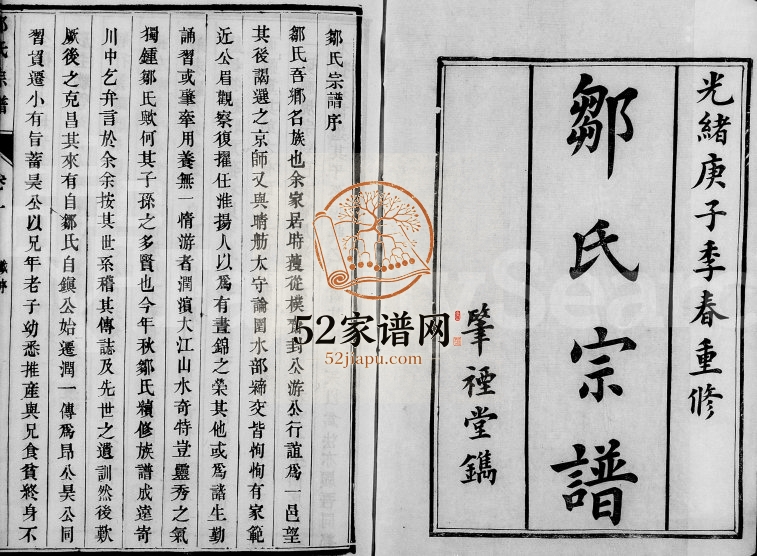 光緒庚子季春重修
鄒氏宗譜
肇禋堂鐫
鄒氏宗譜序
鄒氏吾鄉名族也余家居時獲從樸 封公游公行誼爲一邑望
其後謁選之京師又與晴舫太守論園水部締交皆恂恂有家範
近公眉觀察復擢任淮揚人以爲有晝錦之榮其他或爲諸生勤
誦習或肇牽用養無一惰游者潤濱大江山水奇特豈靈秀之氣
獨鍾鄒氏歟何其子孫之多賢也今年秋鄒氏續修族譜成遠寄
川中乞弁言於余余按其世系稽其傳誌及先世之遺訓然後歎
厥後之克昌其來有自鄒氏自鎮公始遷潤一傳爲昂公昊公同
習賈遷小有旨蓄昊公以兄年老子幼悉推產與兄食貧終身不
氏宗譜
52家谱网
52jiapu.com